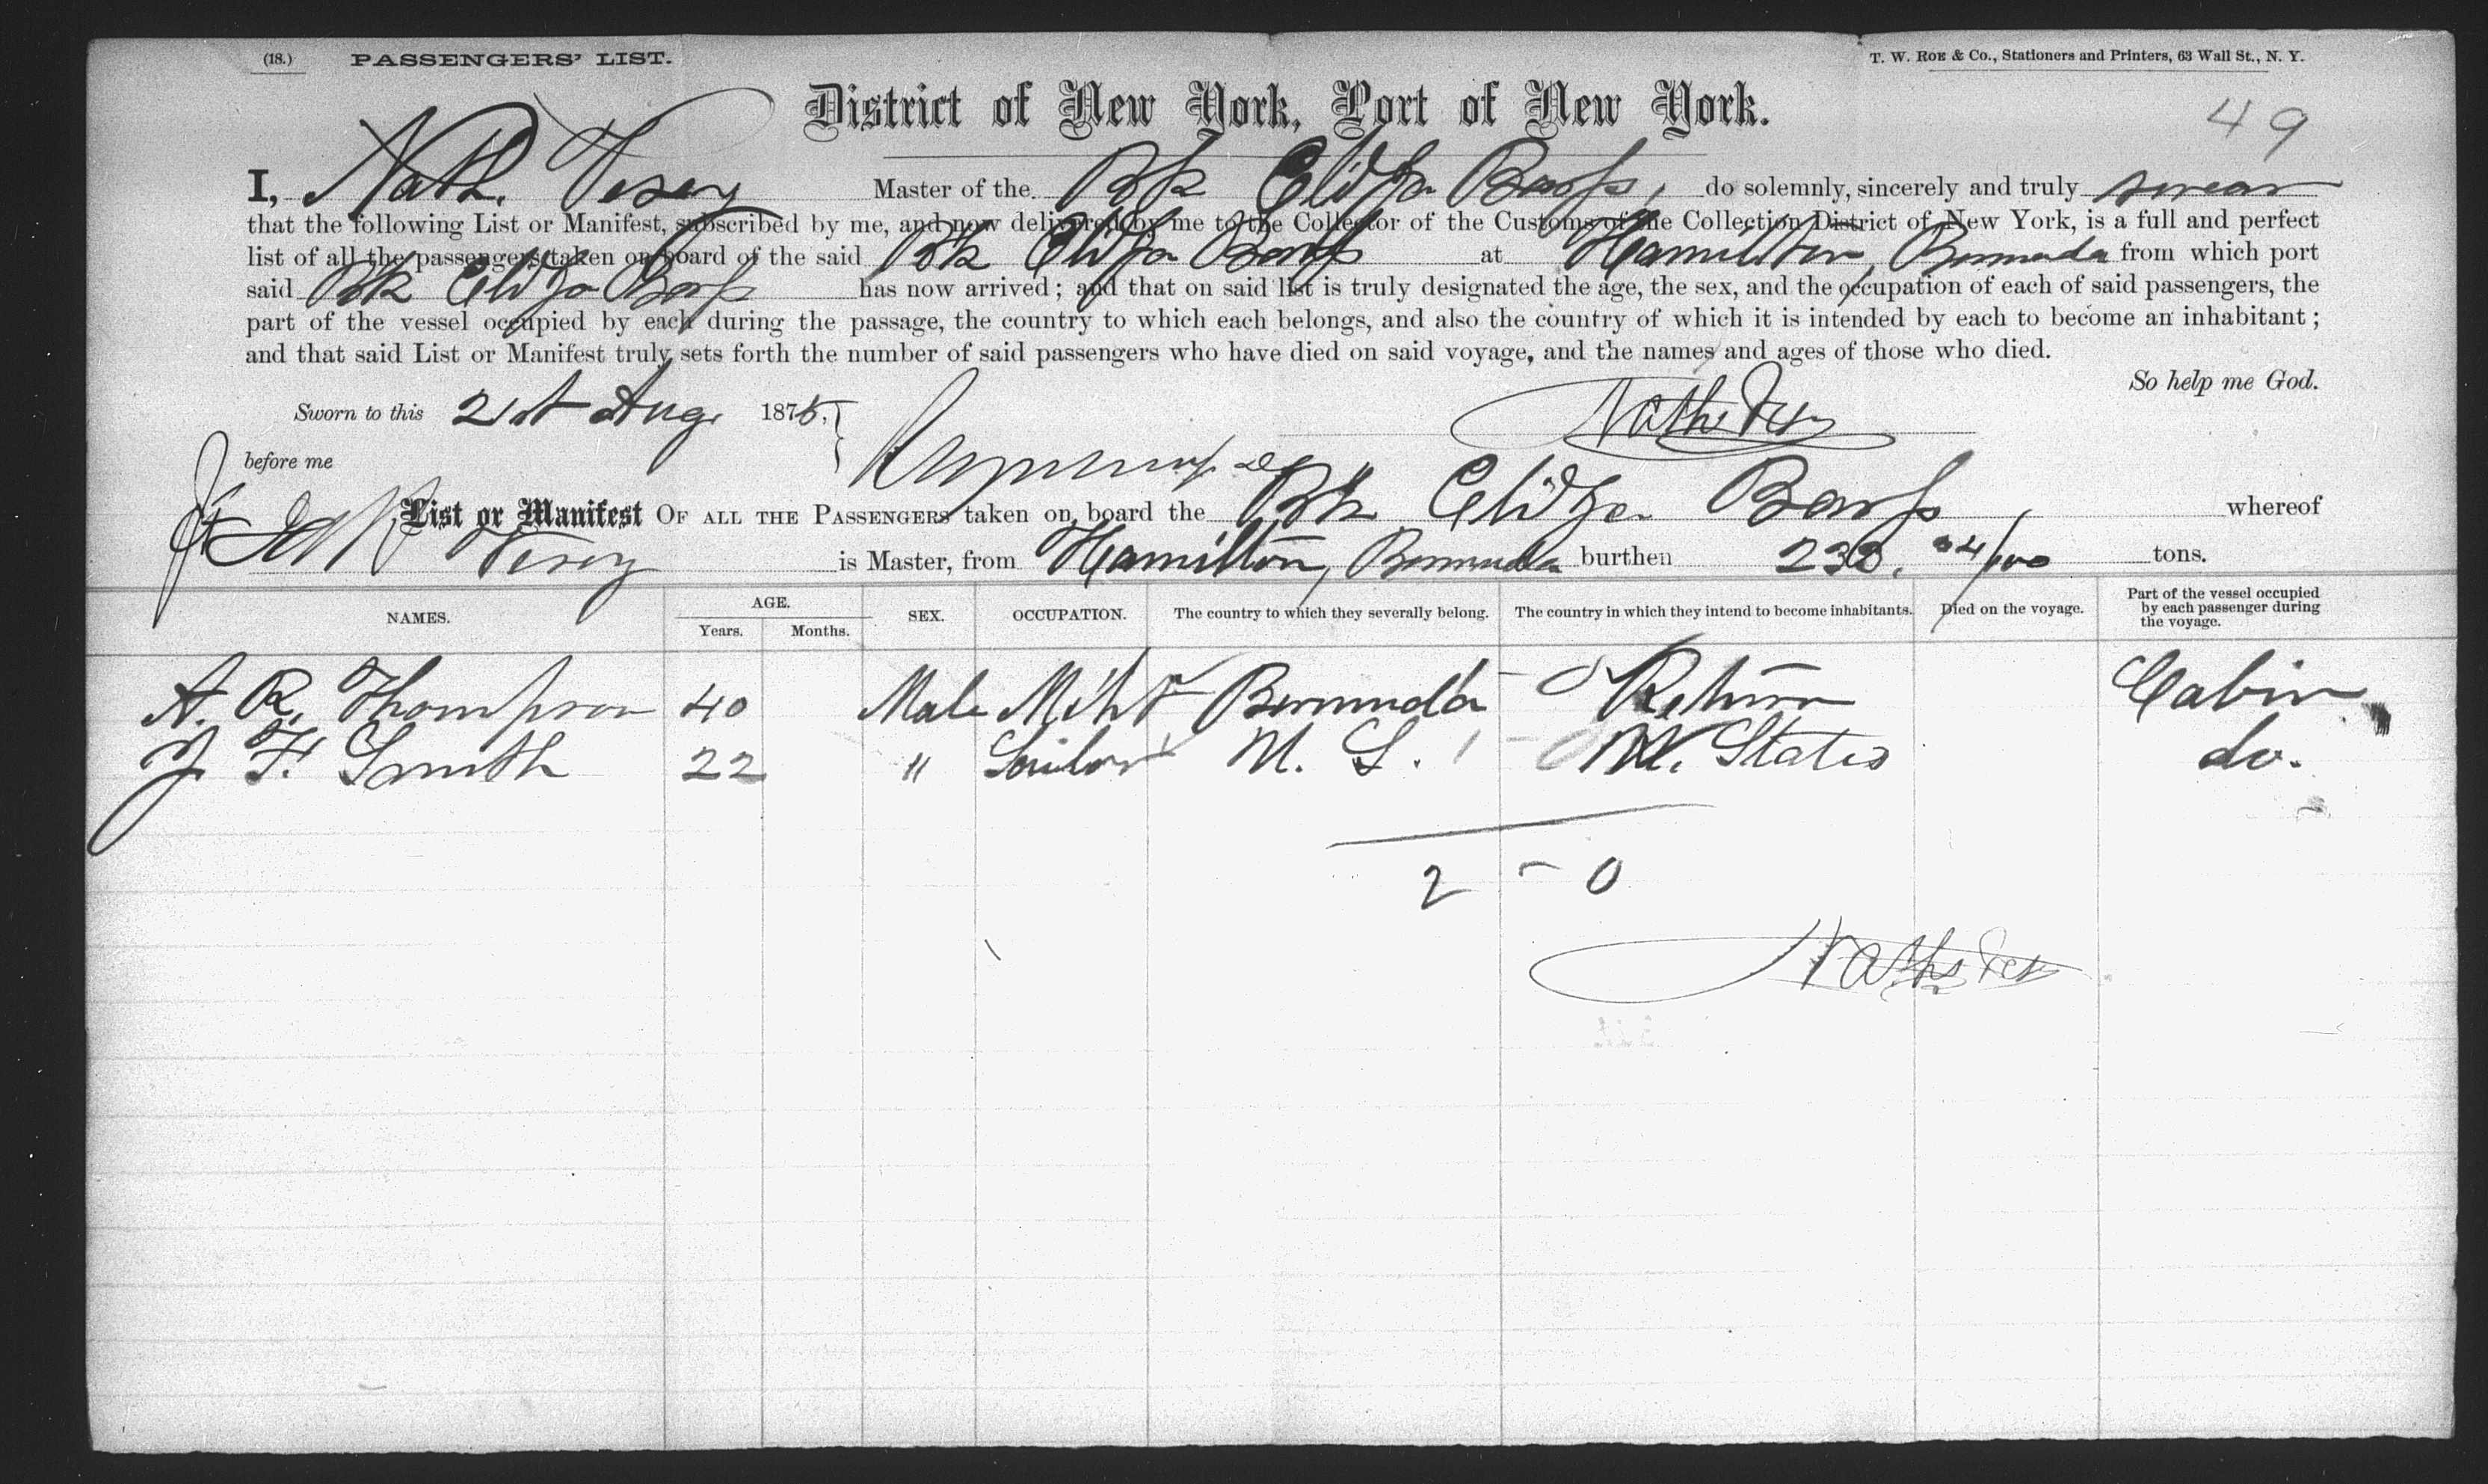 (18.) PASSENGERS' LIST. T. W. ROE & Co., Stationers and Printers, 63 Wall St., N. Y.
District of New York, Port of New York.
49
I, Nath. Vesey Master of the Bk Eliza Barss, do solemnly, sincerely and truly swear
that the following List or Manifest, subscribed by me, and now delivered by me to the Collector of the Customs of the Collection District of New York, is a full and perfect
list of all the passengers taken on board of the said Bk Eliza Barss at Hamilton, Bermuda from which port
said Bk Eliza Barss has now arrived; and that on said list is truly designated the age, the sex, and the occupation of each of said passengers, the
part of the vessel occupied by each during the passage, the country to which each belongs, and also the country of which it is intended by each to become an inhabitant;
and that said List or Manifest truly sets forth the number of said passengers who have died on said voyage, and the names and ages of those who died.
So help me God.
Sworn to this 21st Aug. 1875. Nath Vesey
before me
List or Manifest OF ALL THE PASSENGERS taken on board the Bk Eliza Barss, whereof
Vesey is Master, from Hamilton, Bermuda burthen 04/100 tons.
NAMES. AGE. Years. Months. SEX. OCCUPATION. The country to which they severally belong. The country in which they intend to become inhabitants. Died on the voyage. Part of the vessel occupied by each passenger during the voyage.
A. R. Thompson 40 Male Bermuda Return Cabin
J. F. Smith 22 " Sailor U. S. U. States do.
2 - 0
Nath Vesey